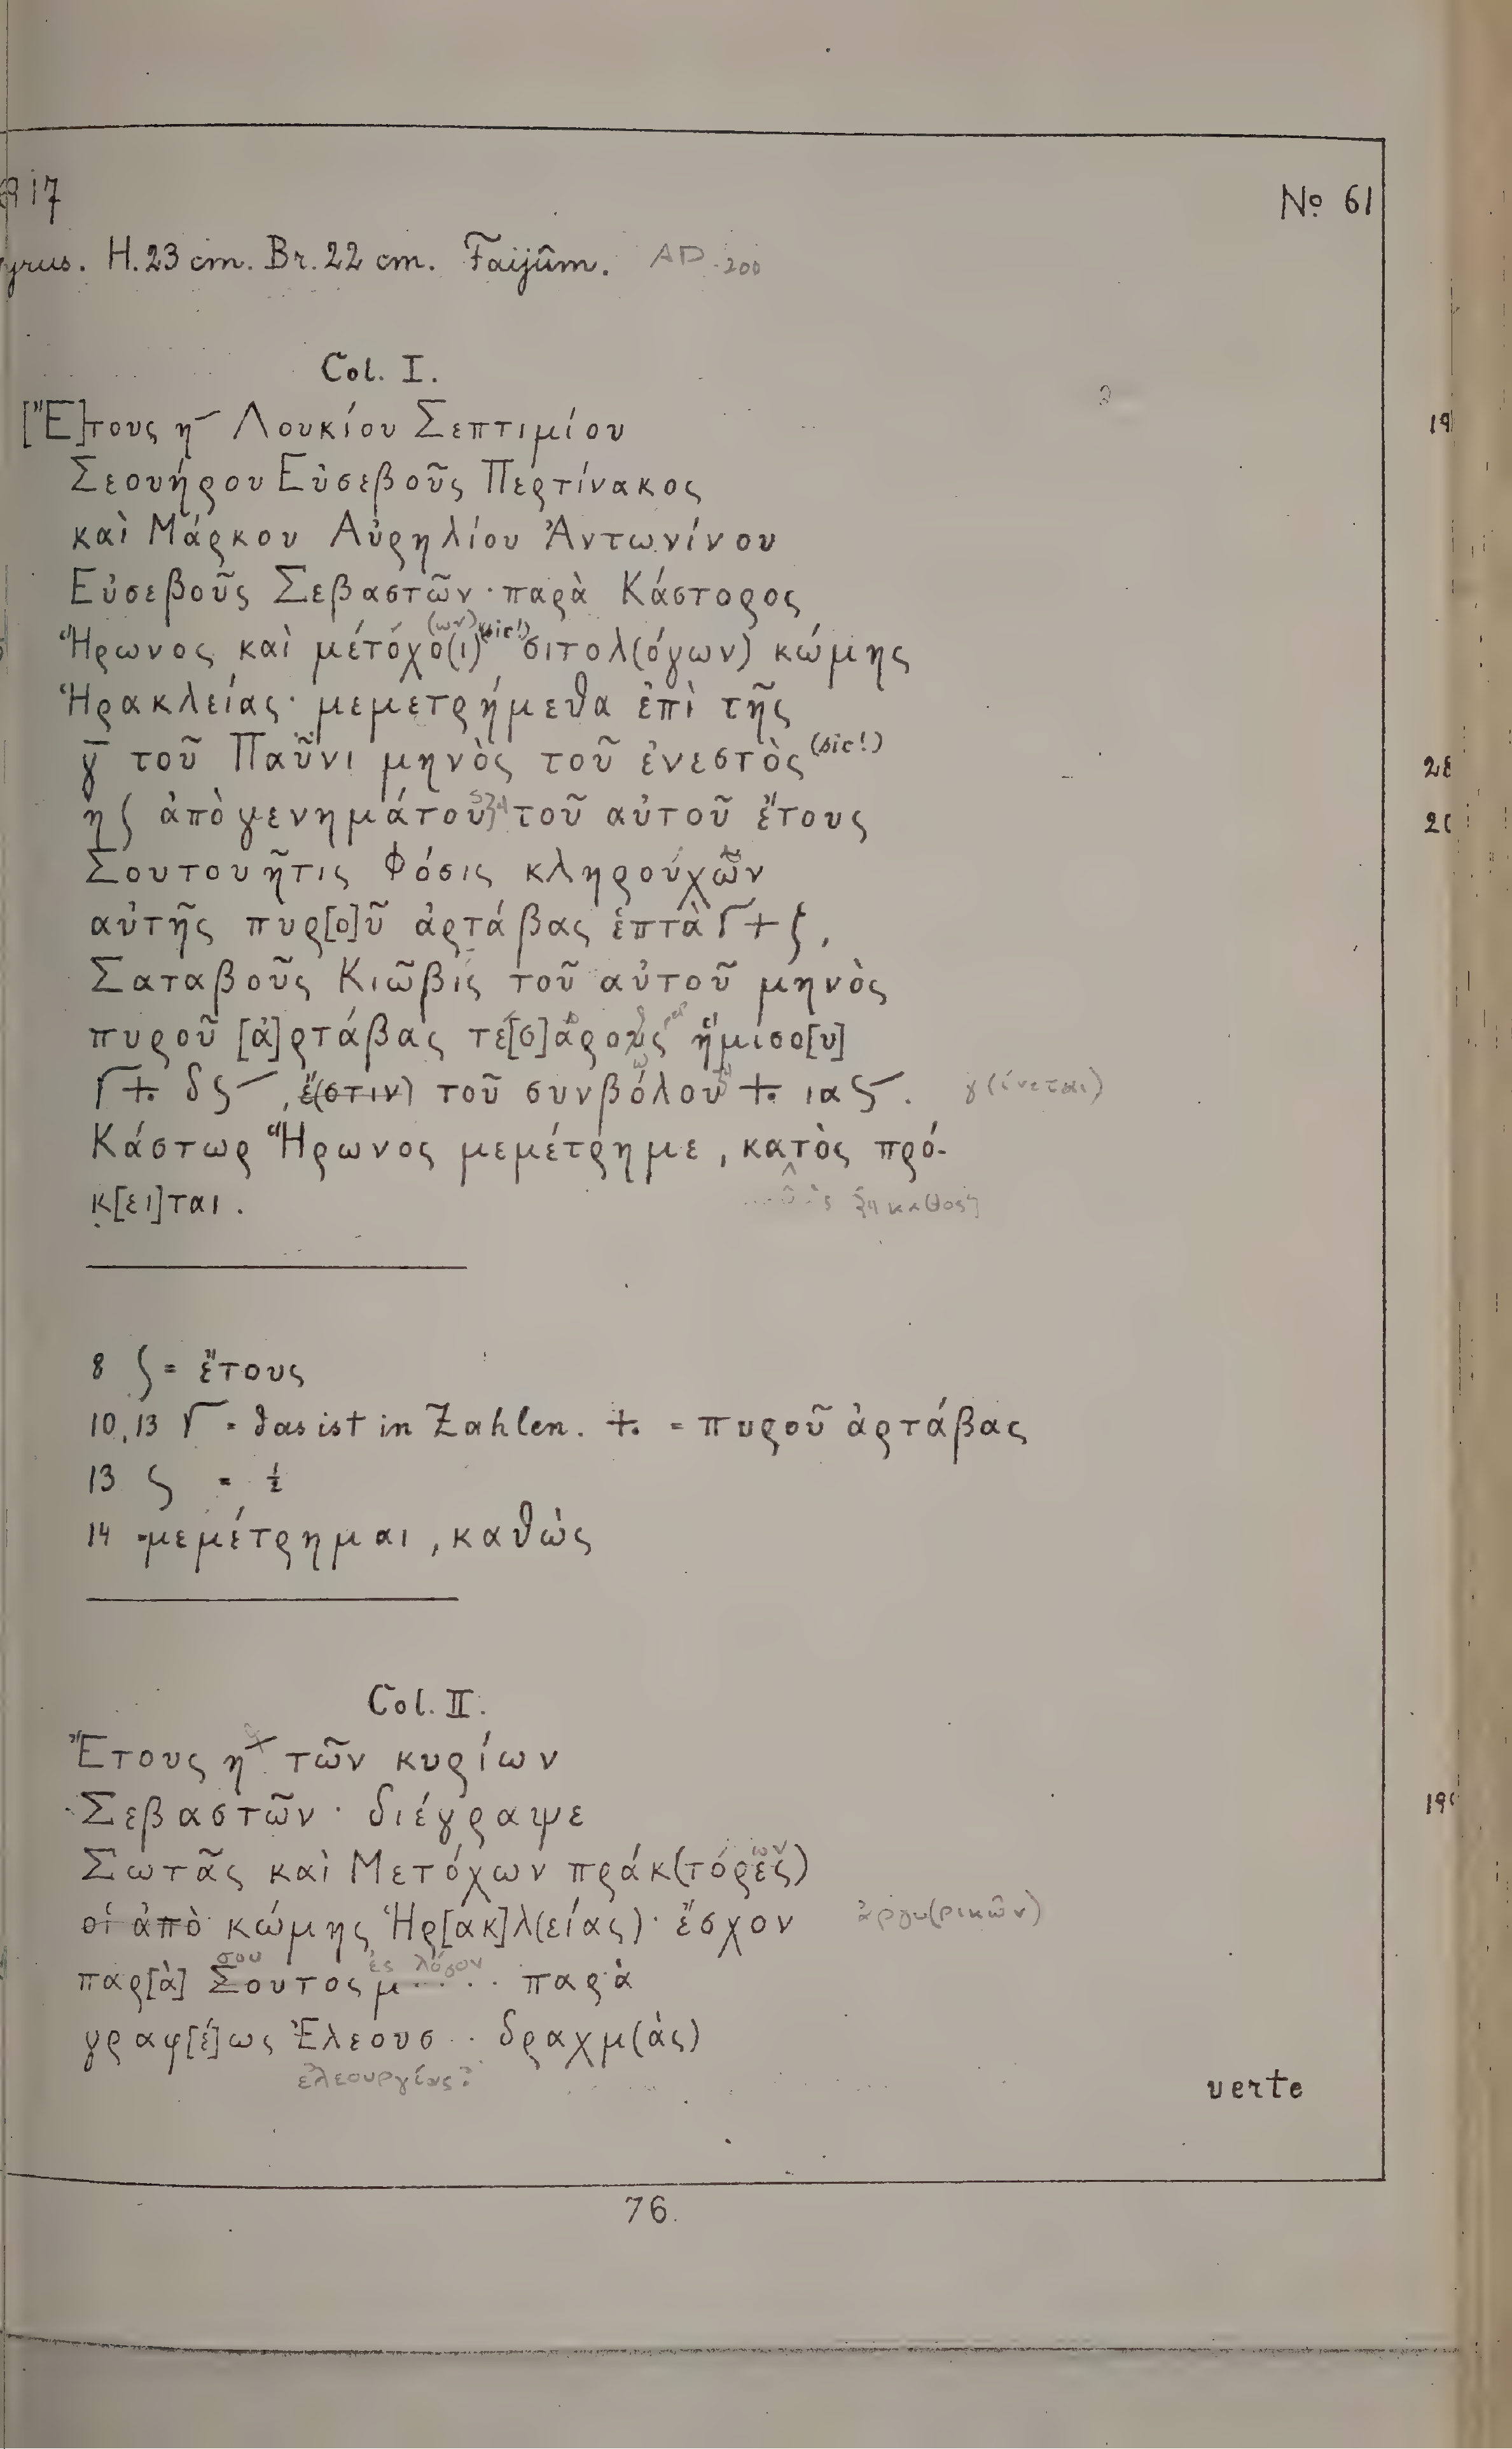 17
No 61
yrus. H. 23 cm. Br. 22 cm. Faijûm. AD 200
Col. I.
["Ε]τους η Λουκίου Σεπτιμίου
Σεουήρου Εὐσεβοῦς Περτίνακος
καὶ Μάρκου Αὐρηλίου Ἀντωνίνου
Εὐσεβοῦς Σεβαστῶν · παρὰ Κάστορος
Ἥρωνος καὶ μέτόχο(ι) (ων) (sic!) σιτολ(όγων) κώμης
Ἡρακλείας · μεμετρήμεθα ἐπὶ τῆς
γ̅ τοῦ Παῧνι μηνὸς τοῦ ἐνεστὸς (sic!)
η ʃ ἀπὸ γενημάτου τοῦ αὐτοῦ ἔτους
Σουτουῆτις Φόσις κληρούχῶν
αὐτῆς πυρ[ο]ῦ ἀρτάβας ἑπτὰ Γ + ζ,
Σαταβοῦς Κιῶβις τοῦ αὐτοῦ μηνὸς
πυροῦ [ἀ]ρτάβας τέ[σ]αρους ἥμισο[υ]
Γ +. δς, ἔ(στιν) τοῦ συνβόλου +. ιας. γ(ίνεται)
Κάστωρ Ἥρωνος μεμέτρημε, κατὸς πρό-
κ[ει]ται.
8 ʃ = ἔτους
10, 13 Γ = das ist in Zahlen. +. = πυροῦ ἀρτάβας
13 ς = ½
14 = μεμέτρημαι, καθὼς
Col. II.
Ἔτους η τῶν κυρίων
Σεβαστῶν · διέγραψε
Σωτᾶς καὶ Μετόχων πράκ(τόρες) ων
οἱ ἀπὸ κώμης Ἡρ[ακ]λ(είας) · ἔσχον ἀργυ(ρικῶν)
σου ἐς λόγον
παρ[ὰ] Σουτος μ · · · · παρὰ
γραφ[έ]ως Ἐλεουσ · · δραχμ(ὰς)
ἐλεουργίας?
verte
76.